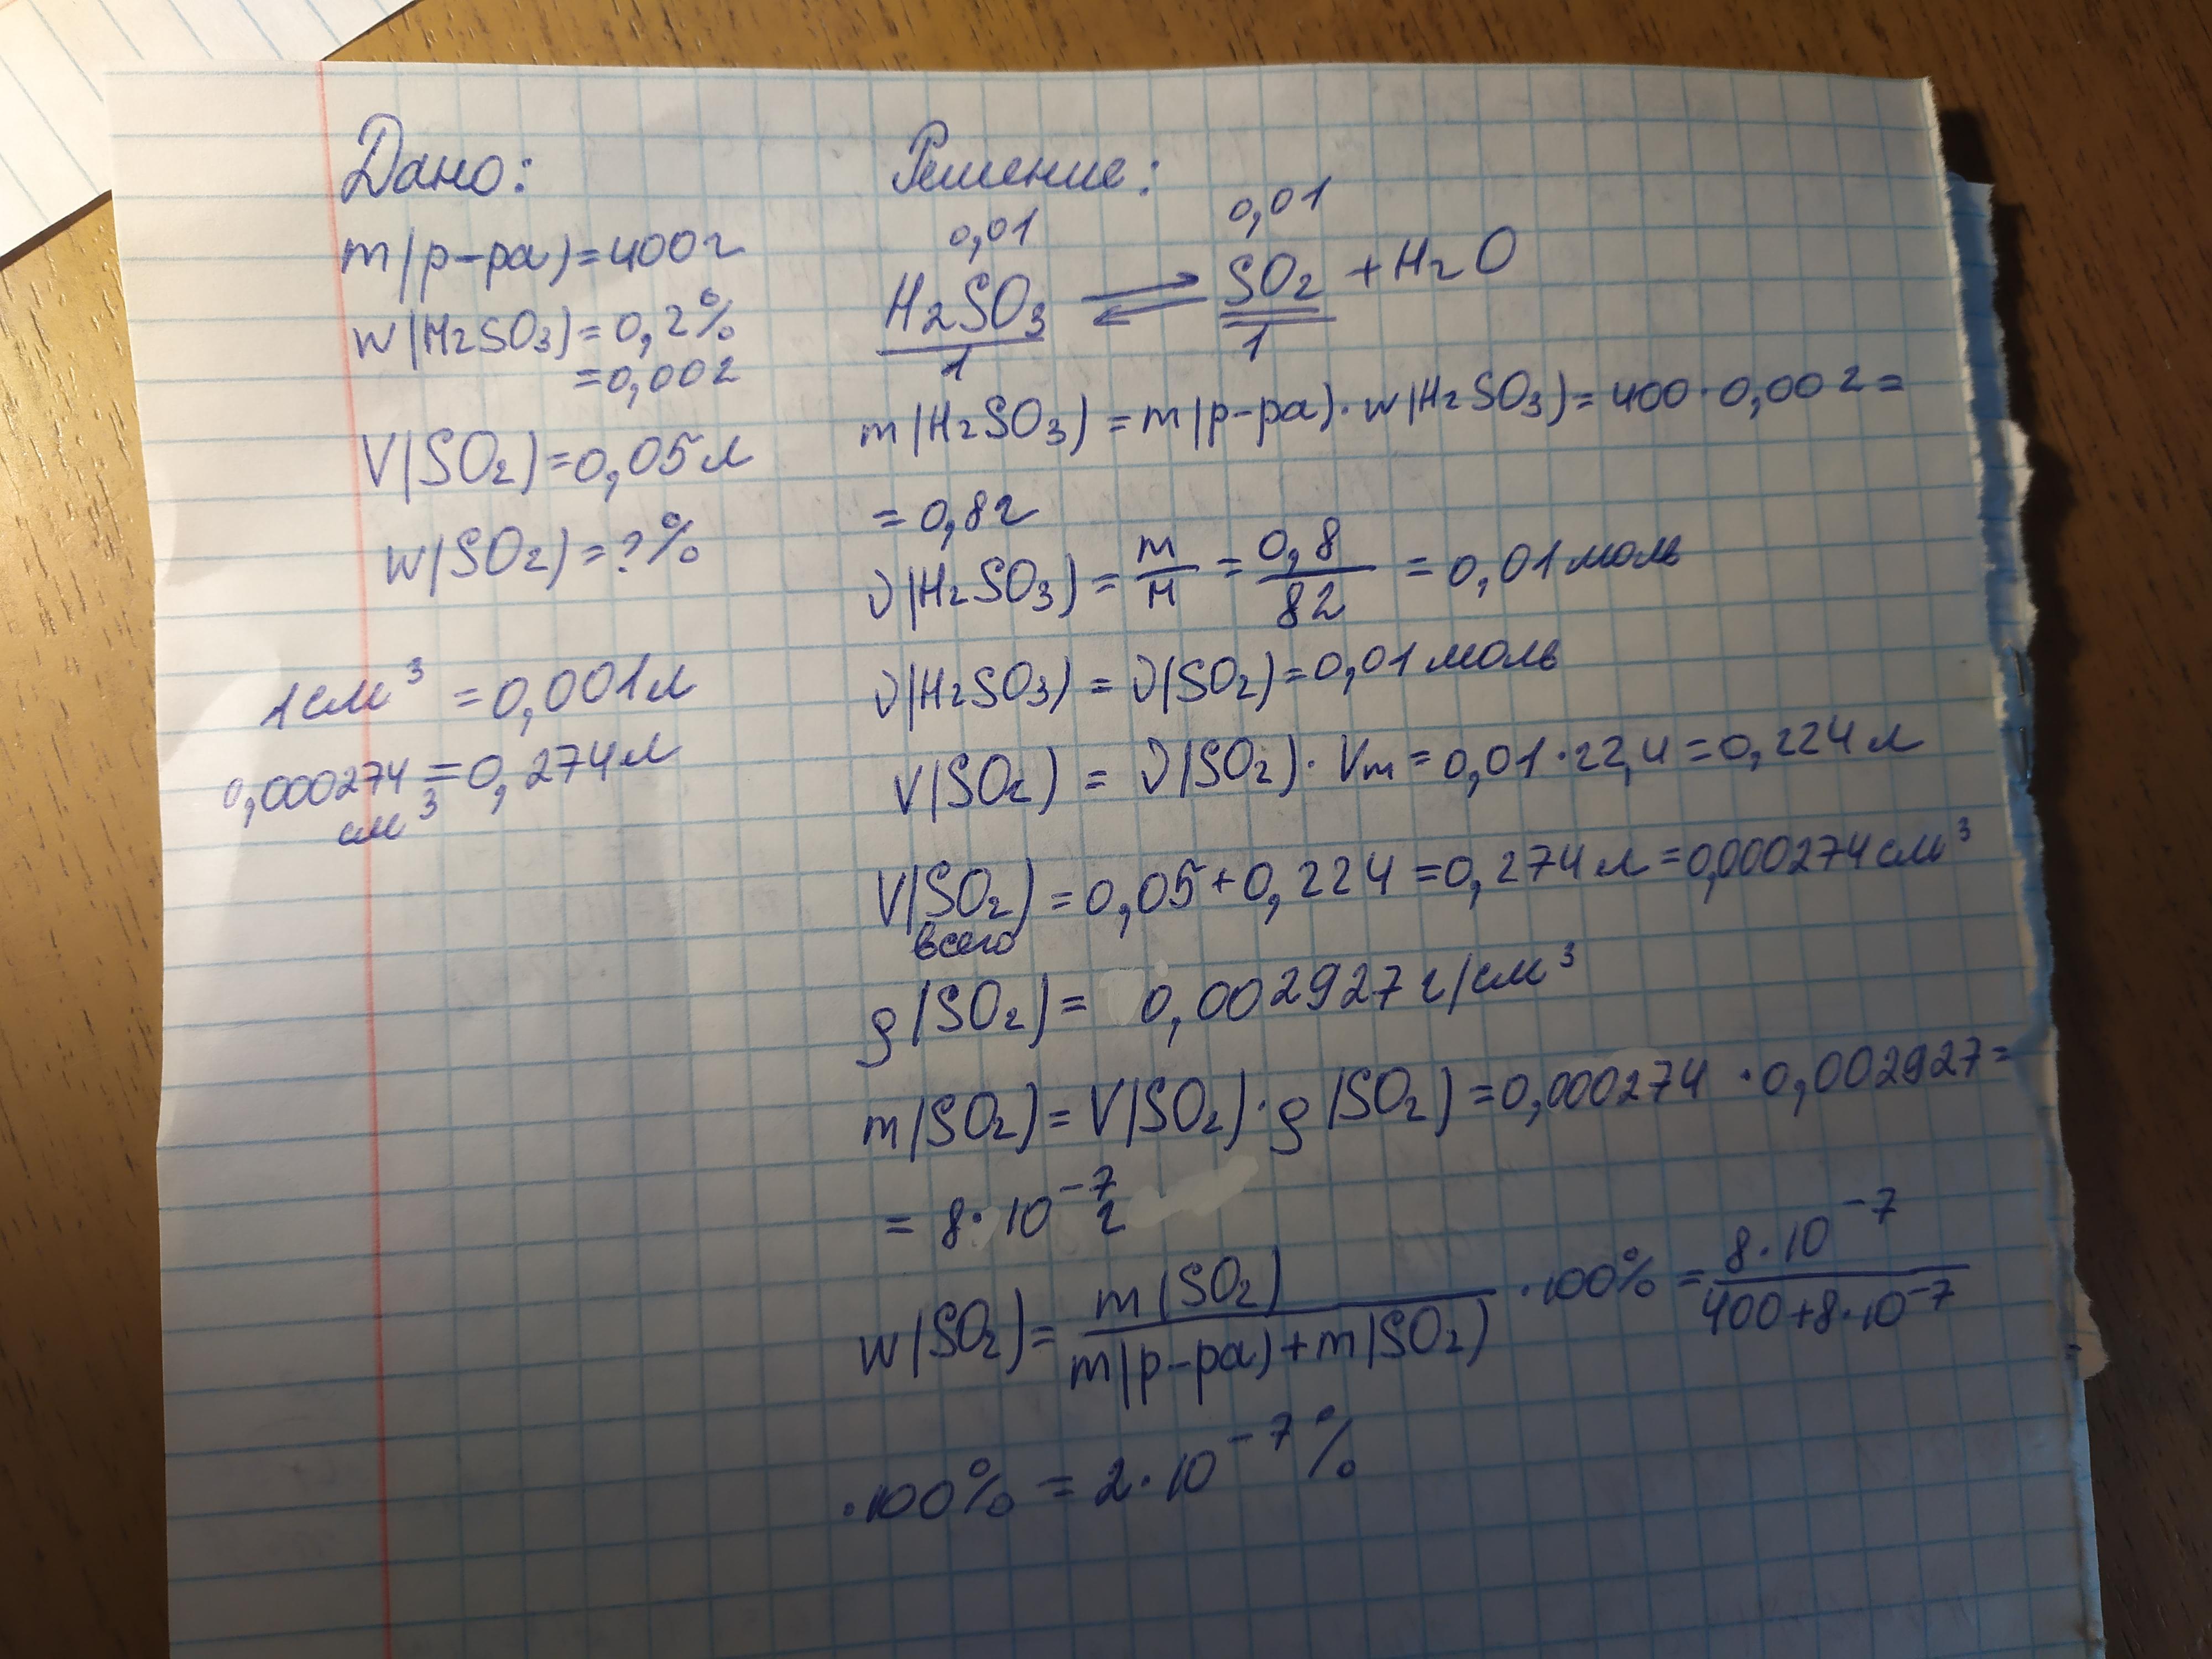 Дано:
m(р-ра)=400г
w(H₂SO₃)=0,2%
=0,002
V(SO₂)=0,05л
w(SO₂)=?%
1см³ =0,001л
0,000274 =0,274л
см³
Решение:
0,01 0,01
H₂SO₃ ⇄ SO₂ +H₂O
1 1
m(H₂SO₃)=m(р-ра)·w(H₂SO₃)=400·0,002=
=0,8г
ν(H₂SO₃)=m/M=0,8/82=0,01моль
ν(H₂SO₃)=ν(SO₂)=0,01моль
V(SO₂)=ν(SO₂)·Vm=0,01·22,4=0,224л
V(SO₂)=0,05+0,224=0,274л=0,000274см³
всего
ρ(SO₂)= 0,002927г/см³
m(SO₂)=V(SO₂)·ρ(SO₂)=0,000274·0,002927=
=8·10⁻⁷г
w(SO₂)=m(SO₂)/m(р-ра)+m(SO₂)·100%=8·10⁻⁷/400+8·10⁻⁷
·100%=2·10⁻⁷%